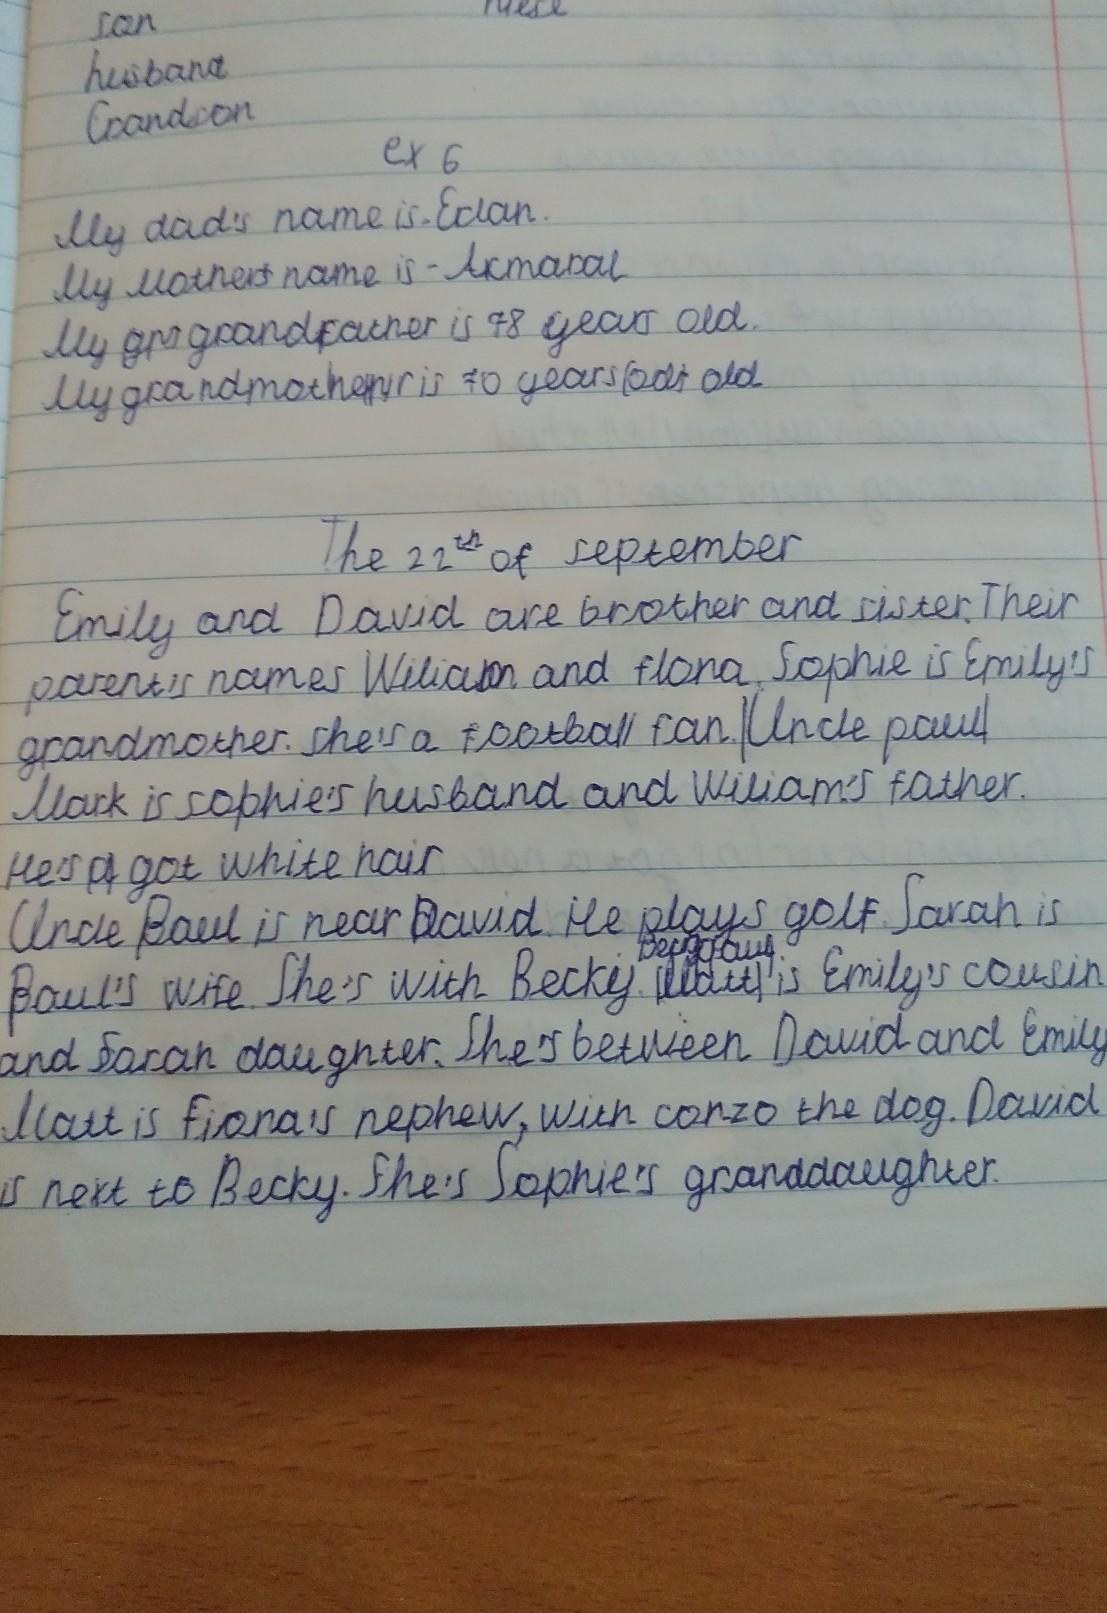 son
husband
Grandson
ex 6
My dad's name is-Erlan.
My Mother's name is - Akmaral
My grandfather is 78 years old.
My grandmother is 70 years old
The 22th of september
Emily and David are brother and sister. Their
parent's names Wiliam and flona. Sophie is Emily's
grandmother. she's a football fan. (Uncle paul)
Mark is sophie's husband and Wiliam's father.
He's got white hair
Uncle Paul is near David. He plays golf. Sarah is
Paul's wife. She's with Becky. (Matt) is Emily's cousin
and Sarah daughter. She's between David and Emily
Matt is Fiona's nephew, with conzo the dog. David
is next to Becky. She's Sophie's granddaughter.